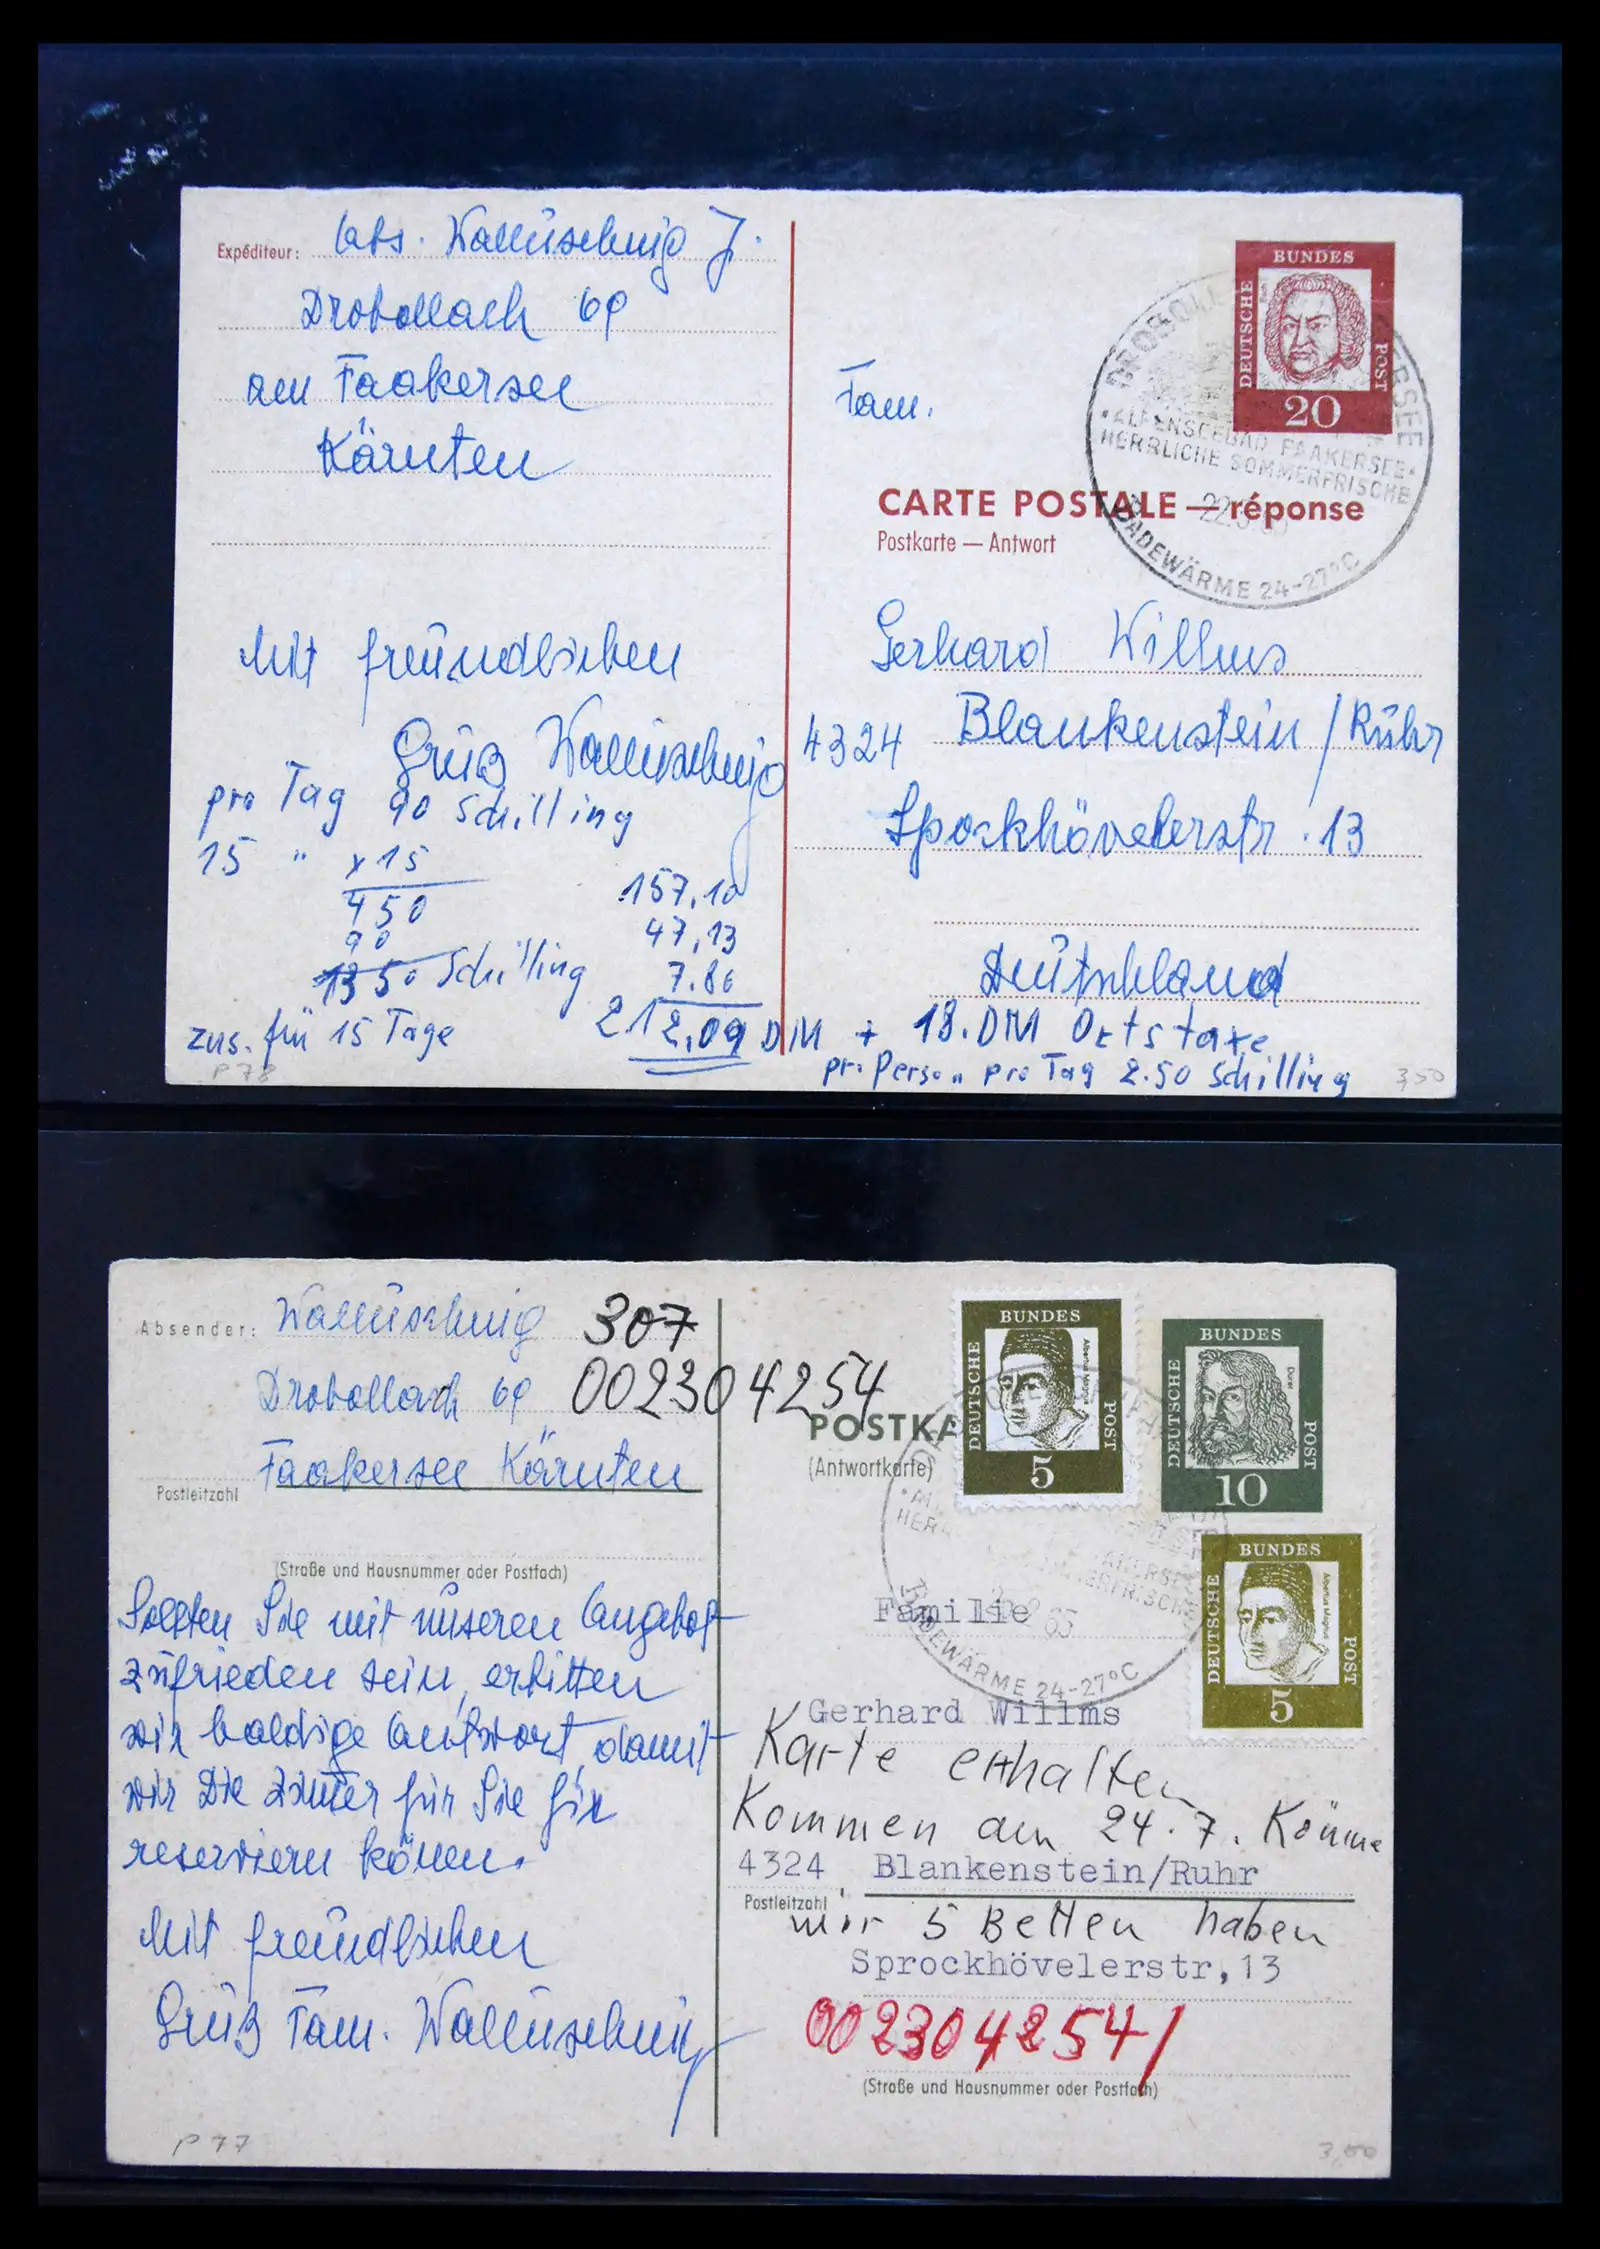 Expéditeur: Abs. Wallüschnig J.
Drobollach 69
am Faakersee
Kärnten
Mit freundlichen
Grüß Wallüschnig
pro Tag 90 Schilling
15 " x 15
450
90
1350 Schilling
zus. für 15 Tage
157,10
47,13
7.86
212,09 DM + 18.DM Ortstaxe
pro Person pro Tag 2.50 Schilling
P 78
3,50
DEUTSCHE
BUNDES
POST
Bach
20
ALPENSEEBAD FAAKERSEE
HERRLICHE SOMMERFRISCHE
BADEWÄRME 24-27°C
Fam.
CARTE POSTALE — réponse
Postkarte — Antwort
Gerhard Willms
4324 Blankenstein/Ruhr
Spockhövelerstr. 13
Deutschland
Absender: Wallüschnig 307
Drobollach 69 002304254
Faakersee Kärnten
Postleitzahl
(Straße und Hausnummer oder Postfach)
Sollten Sie mit unseren Angebot
zufrieden sein, erbitten
wir baldige Antwort, damit
wir Die Zimmer für Sie fix
reservieren können.
Mit freundlichen
Grüß Fam. Wallüschnig
P 77
POSTKA
(Antwortkarte)
DEUTSCHE
BUNDES
POST
Albertus Magnus
5
DEUTSCHE
BUNDES
POST
Dürer
10
DEUTSCHE
BUNDES
POST
Albertus Magnus
5
BADEWÄRME 24-27°C
Familie
Gerhard Willms
Karte erhalten
Kommen am 24.7. Könne
4324 Blankenstein/Ruhr
Postleitzahl
wir 5 Betten haben
Sprockhövelerstr,13
0023042541
(Straße und Hausnummer oder Postfach)
3,00